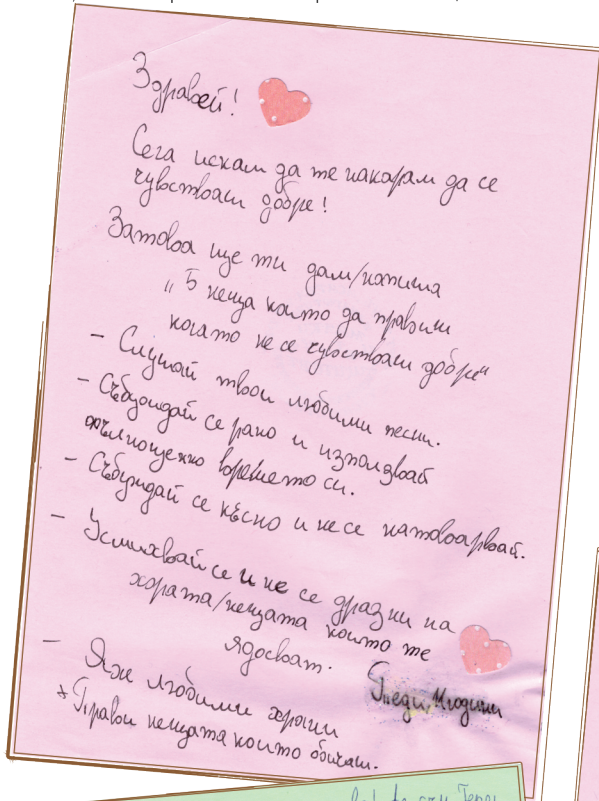 Здравей!
Сега искам да те накарам да се
чувстваш добре!
Затова ще ти дам/напиша
„5 неща които да правиш
когато не се чувстваш добре“
- Слушай твои любими песни.
- Събуждай се рано и използвай
пълноценно времето си.
- Събуждай се късно и не се натоварвай.
- Усмихвай се и не се дразни на
хората/нещата които те
ядосват.
- Яж любими храни
* Прави нещата които обичаш.